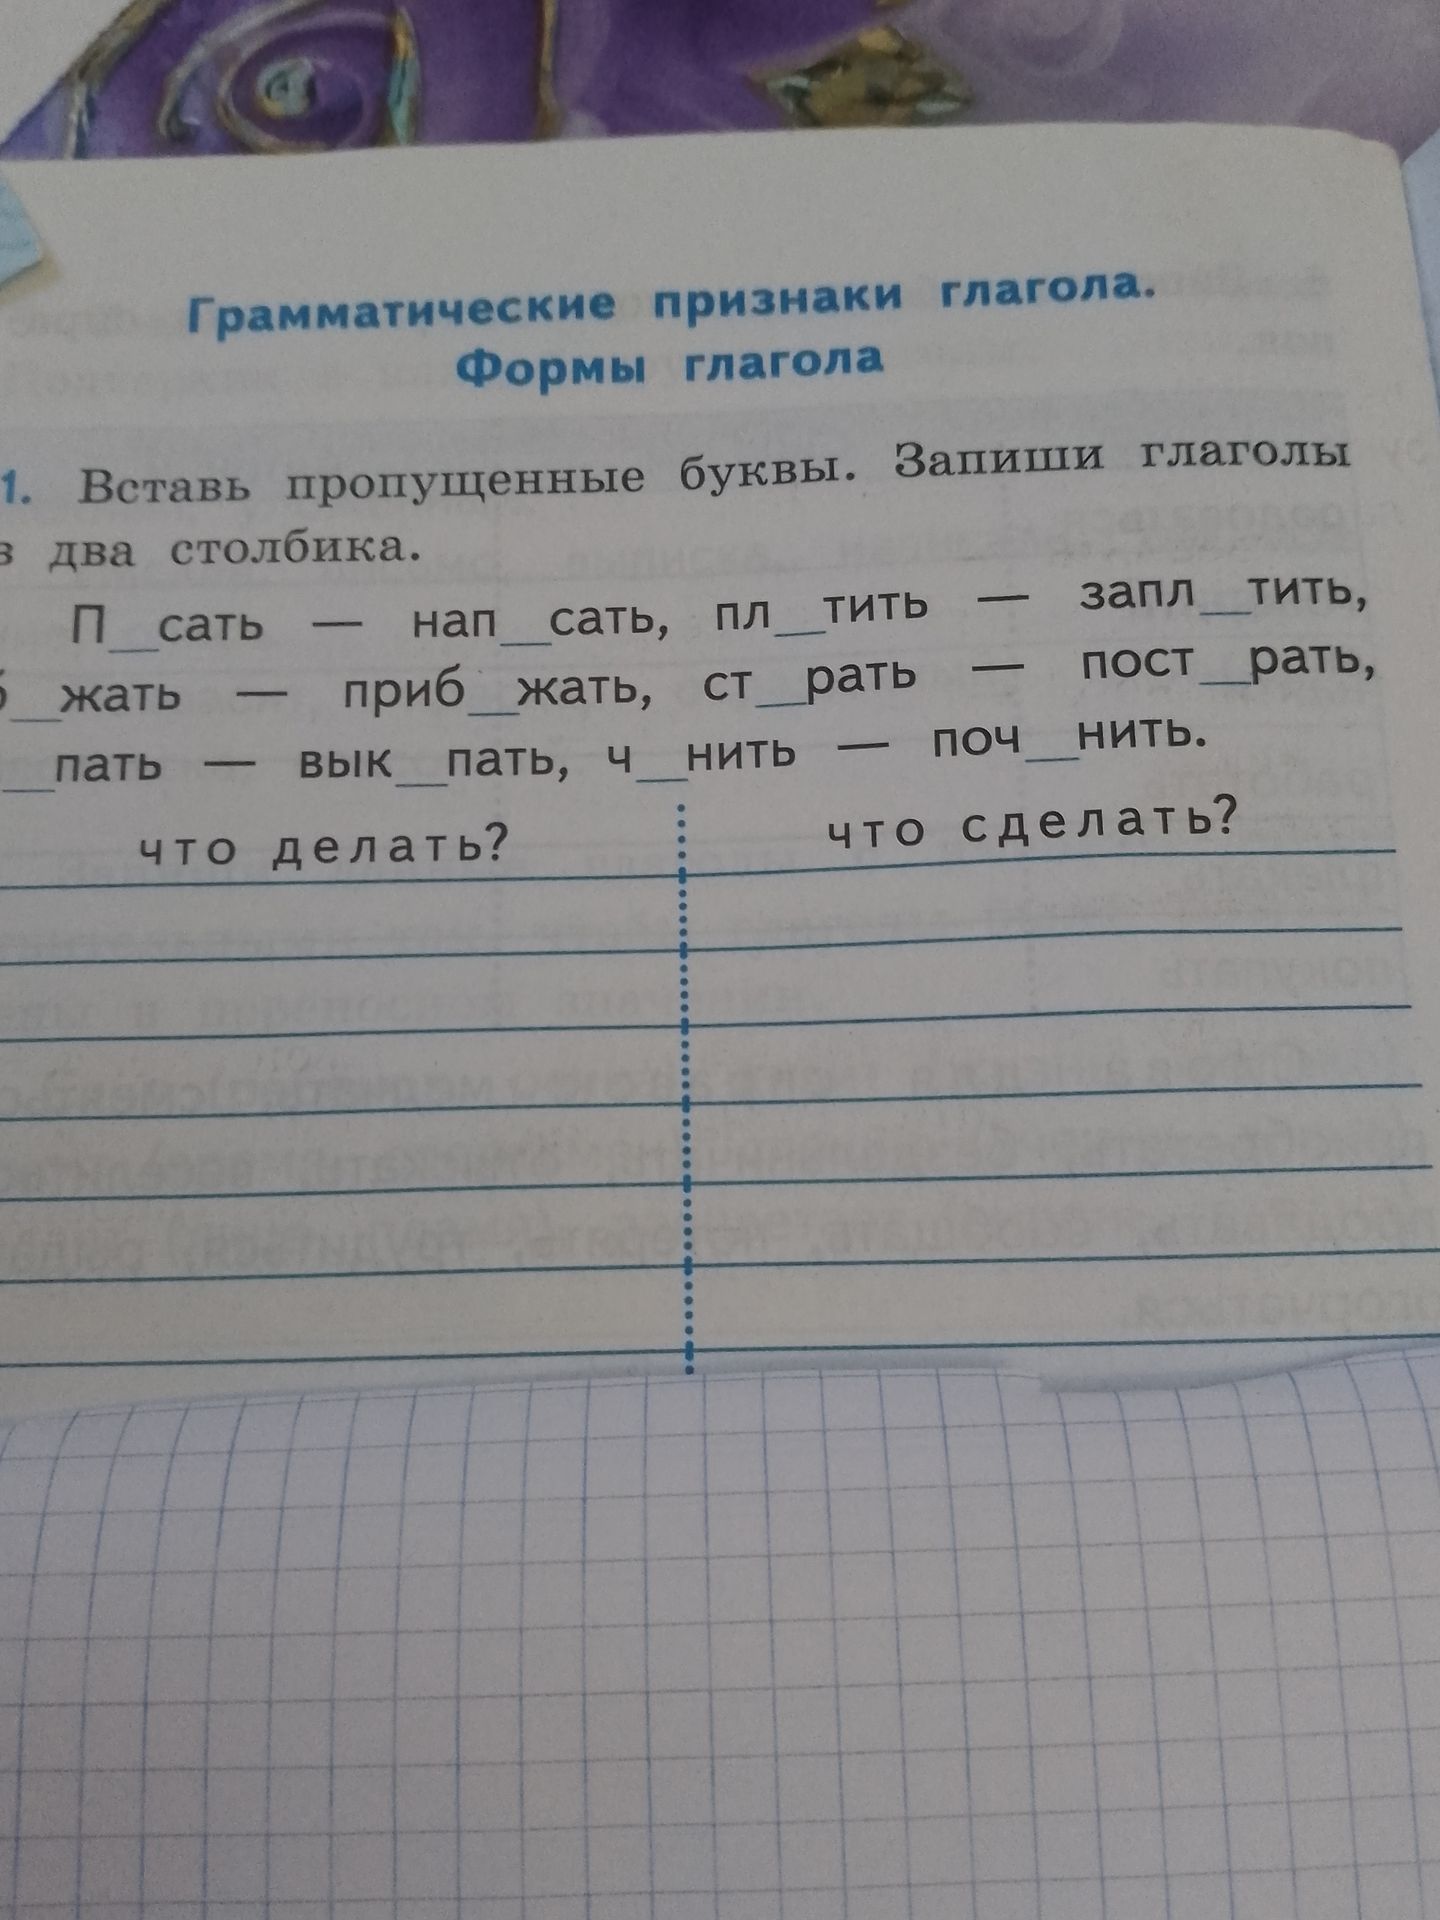 Грамматические признаки глагола.
Формы глагола
1. Вставь пропущенные буквы. Запиши глаголы
в два столбика.
П__сать — нап__сать, пл__тить — запл__тить,
б__жать — приб__жать, ст__рать — пост__рать,
__пать — вык__пать, ч__нить — поч__нить.
что делать? что сделать?